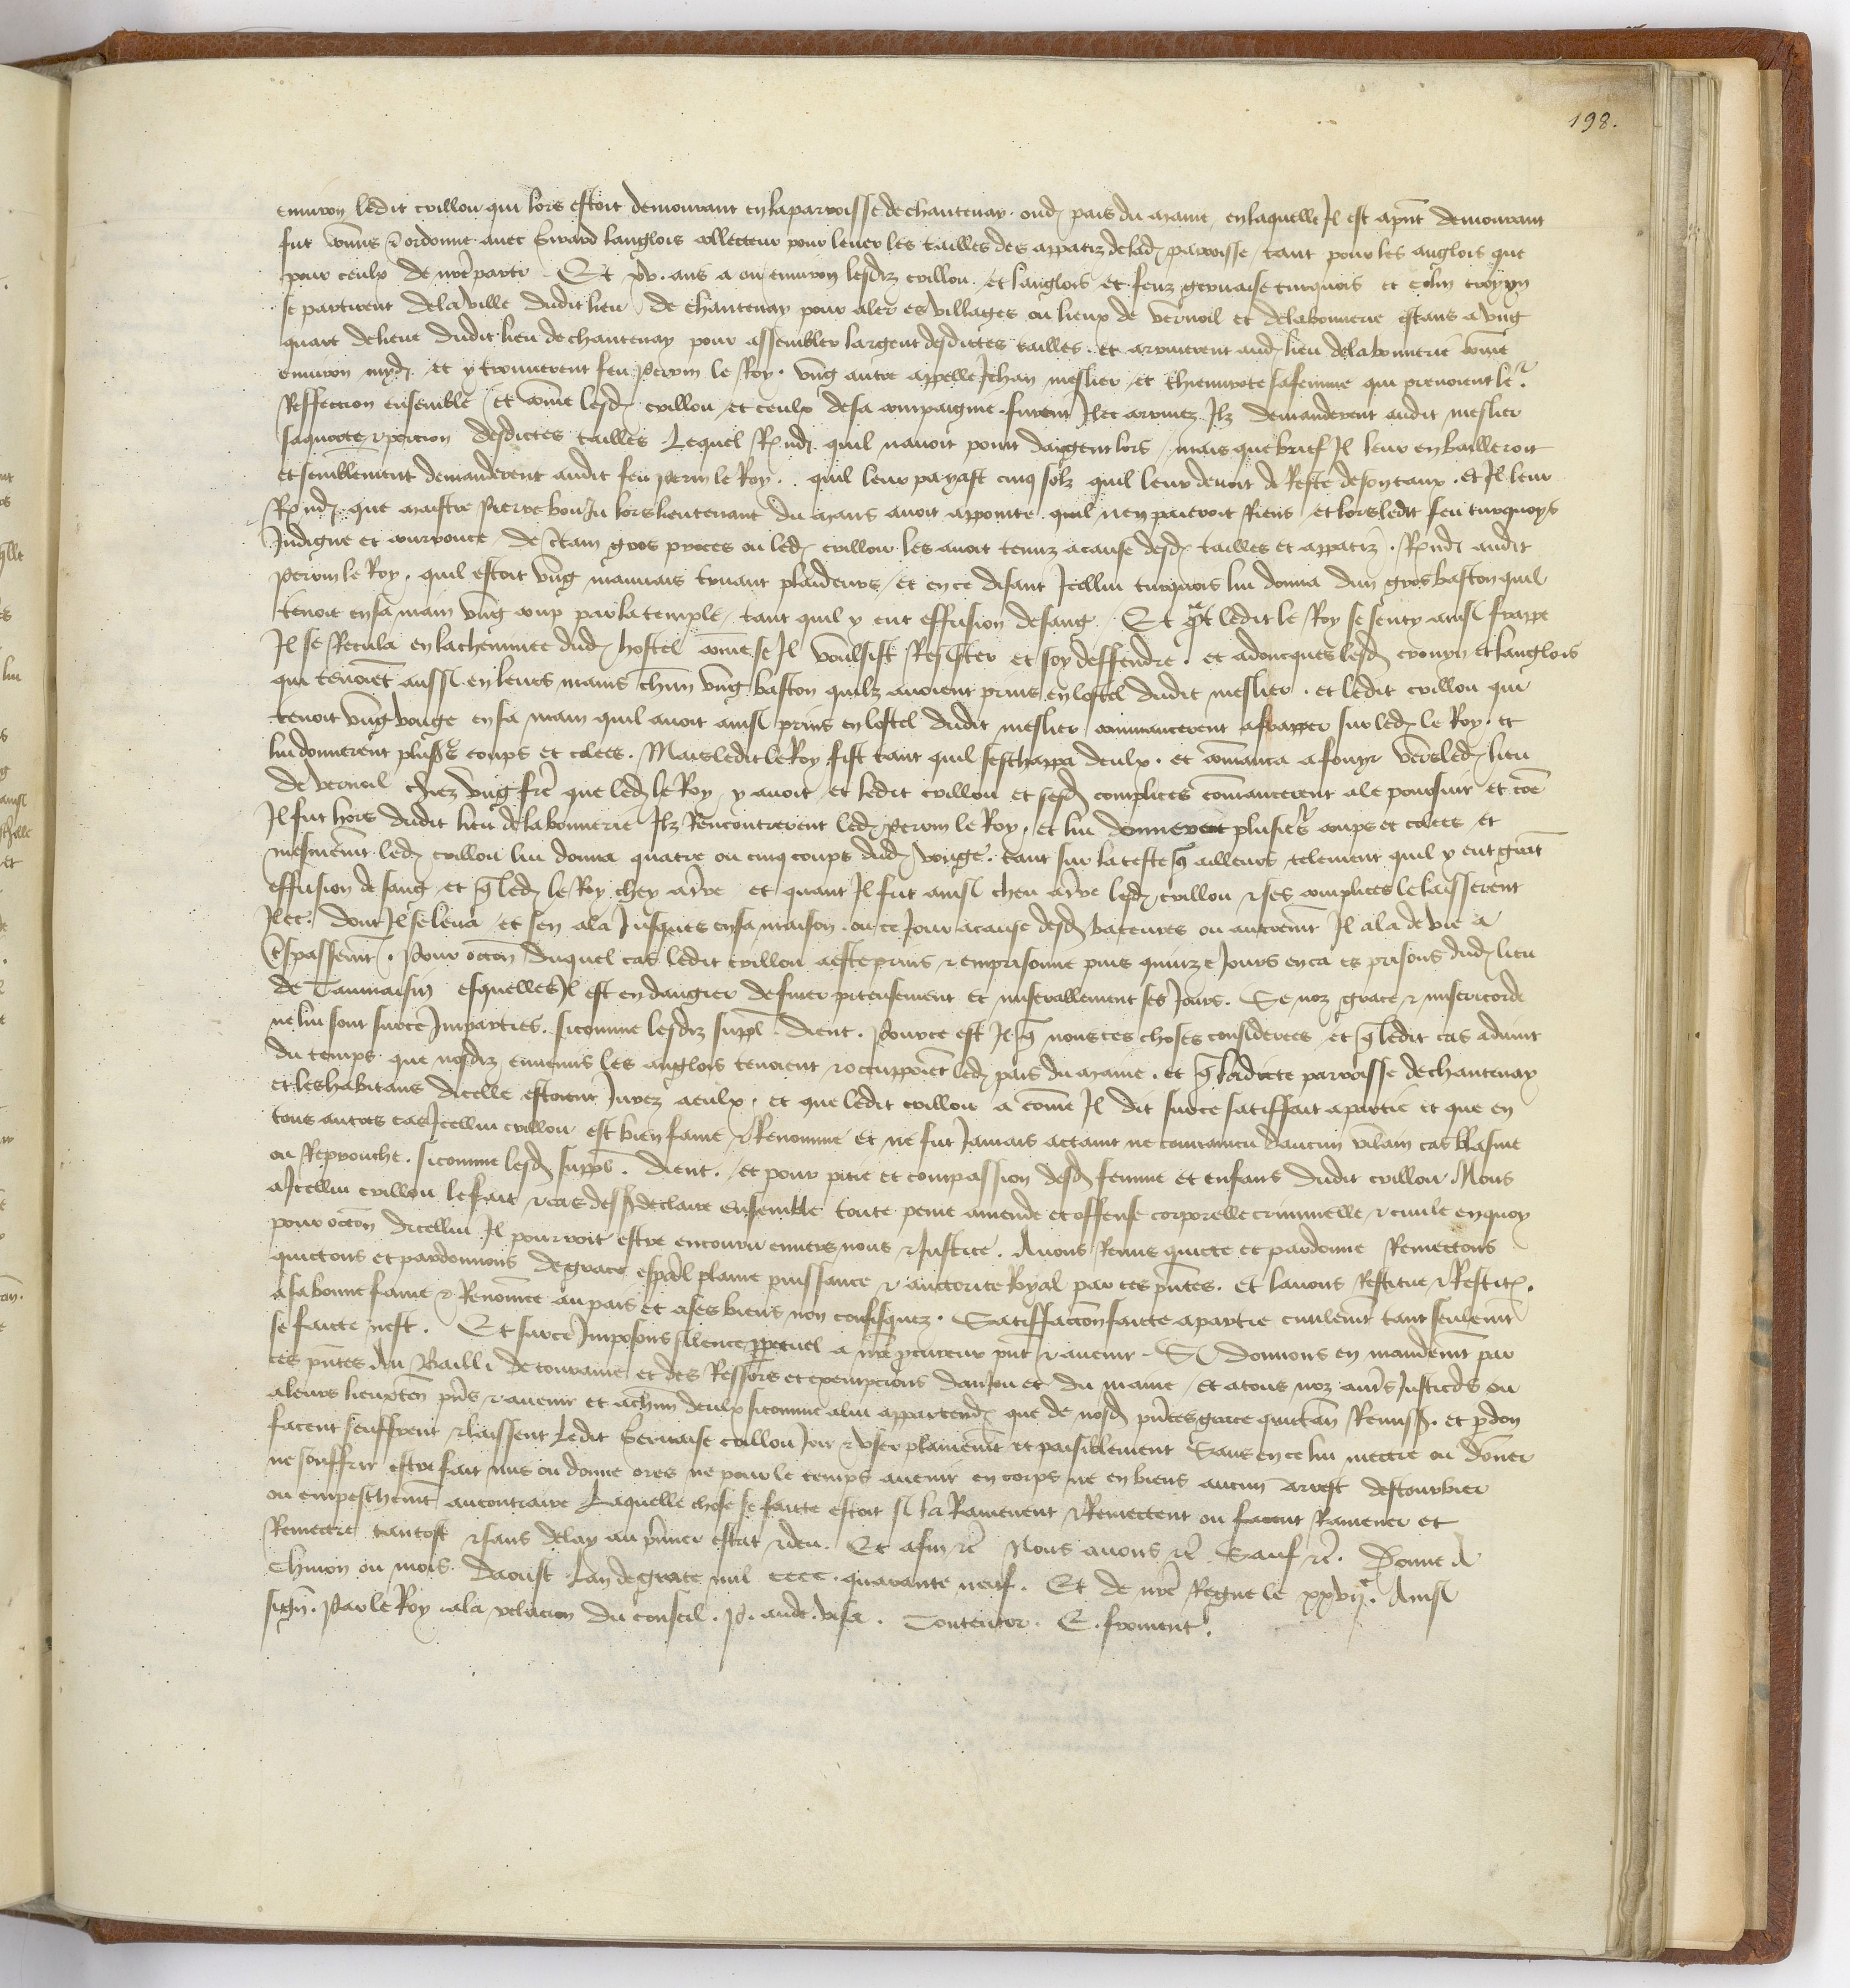 198.
enuiron ledit cuillou qui lors estoit demourant en la parroisse de chantenay oud pais du maine en laquelle Il est apnt demourant
fut comis & ordonne auec Girard langlois collecteur pour leuer les tailles des appatiz de lad parroisse tant pour les anglois que
pour ceulx de nre parti Et xv. ans a ou enuiron lesdiz cuillou et langlois et feuz geruaise turquois et colin
se partirent de la ville dudit lieu de chantenay pour aler es villages ou lieux de vernoil et de labonnerie estans a vng
quart de lieue dudit lieu de chantenay pour assembler largent desdictes tailles. et arriuerent aud lieu de labonnerie come
enuiron mydi et y trouuerent feu perrin le Roy. vng autre appelle Jehan meslier et sa femme qui prenoient le
Reffection ensemble et come lesd cuillou et ceulx de sa compaignie furent Ilec arriuez Ilz demanderent audit meslier
sa quocte & porcion desdictes tailles Lequel Rendi quil nauoit point dargent lors mais que brief Il leur en bailleroit
et semblement demanderent audit feu perrin le Roy. quil leur payast cinq solz quil leur deuoit de Reste de son taux. et Il leur
Rendi que maistre Pierre lors lieutenant du mans auoit appointe quil nen paieroit Riens et lors ledit feu turquoys
Indigne et courrouce de ctain gros proces ou led cuillou les auoit tenuz a cause desd tailles et appatiz. Rendi audit
perrin le Roy. quil estoit vng mauuais truant plaideurs et en ce disant Icellui turquois lui donna dun gros baston quil
tenoit en sa main vng coup par la temple tant quil y eut effusion de sang Et qt ledit le Roy se senty ainsi frappe
Il se Recula en la cheminee dud hostel come se Il voulsist Resister et soy deffendre. et adoncques lesd et langlois
qui tenoiet aussi en leurs mains chun vng baston quilz auoient prins en lostel dudit meslier. et ledit cuillou qui
tenoit vng vouge en sa main quil auoit ainsi prins en lostel dudit meslier commancerent a frapper sur led le Roy. et
lui donnerent plusrs coups et colees. Mais ledit le Roy fist tant quil seschappa deulx. et comanca a fouyr vers led lieu
de verneil chez vng frere que led le Roy y auoit et ledit cuillou et sesd complices comancerent a le poursuir et coe
Il fut hors dudit lieu de labonnerie Ilz Rencontrerent led perrin le Roy. et lui donnerent plusieurs coups et colees et
mesmemt led cuillou lui donna quatre ou cinq coups dud vouge. tant sur la teste q ailleurs telement quil y eut grant
effusion de sang et q led le Roy chey a tre et quant Il fut ainsi cheu a tre led cuillou & ses complices le laisserent
Ilec. dont Il se leua et sen ala Jusques en sa maison. ou ce Jour a cause desd bateures ou autremt Il ala de vie a
trespassemt. Pour occon duquel cas ledit cuillou a este prins & emprisonne puis quinze Jours enca es prisons dud lieu
de esquelles Il est en dangier de finer piteusement et miserablement ses Jours. Se noz grace & misericorde
ne lui sont sur ce Imparties. sicomme lesdiz suppl dient. Pource est Il q nous ces choses considerees et q ledit cas aduint
du temps que nosdiz ennemis les anglois tenoient & occuppoiet led pais du maine. et q ladicte parroisse de chantenay
et les habitans dicelle estoient Jurez a eulx. et que ledit cuillou a come Il dit sur ce satisfait a partie et que en
tous autres cas Icellui cuillou est bien fame & Renomme et ne fut Jamais attaint ne conuaincu daucun vilain cas blasme
ou Reprouche. sicomme lesd suppl. dient. et pour pitie et compassion desd femme et enfans dudit cuillou Nous
a Icellui cuillou le fait & cas dessus declaire ensemble toute peine amende et offense corporelle criminelle & ciuile en quoy
pour occon dicellui Il pourroit estre encouru enuers nous & Justice. Auons Remis quicte et pardonne Remettons
quictons et pardonnons de grace espal plaine puissance & auctorite Royal par ces pntes. Et lauons Restitue & Restit.
a sa bonne fame & Renomee au pais et a ses biens non confisquez. Satisfaccon faicte a partie ciuilemt tant seulemt
se faicte nest. Et sur ce Imposons silence ppetuel a nre procureur pnt & auenir. Si donnons en mandemt par
ces pntes Au Bailli de touraine et des Ressors et exempcions danjou et du maine et a tous noz aures Justiciers ou
a leurs lieuxten pns & auenir et a chun deulx sicomme a lui appartend que de nosd pntes grace quictan Remiss. et pdon
facent seuffrent & laissent Ledit Geruaise cuillou Joir & vser plainemt et paisiblement Sans en ce lui mectre ou doner
ne souffrir estre fait mis ou donne ores ne pour le temps auenir en corps ne en biens aucun arrest destourbier
ou empeschemt au contraire Laquelle chose se faicte estoit si la Ramenent & Remectent ou facent Ramener et
Remectre tantost & sans delay au pmier estat & deu. Et afin &c Nous auons &c Sauf &c. Donne a
Chinon ou mois daoust Lan de grace mil cccc. quarante neuf. Et de nre Regne le xxvije. Ainsi
sign. Par le Roy a la relacion du conseil. P. aude. visa. Contentor. E. froment.